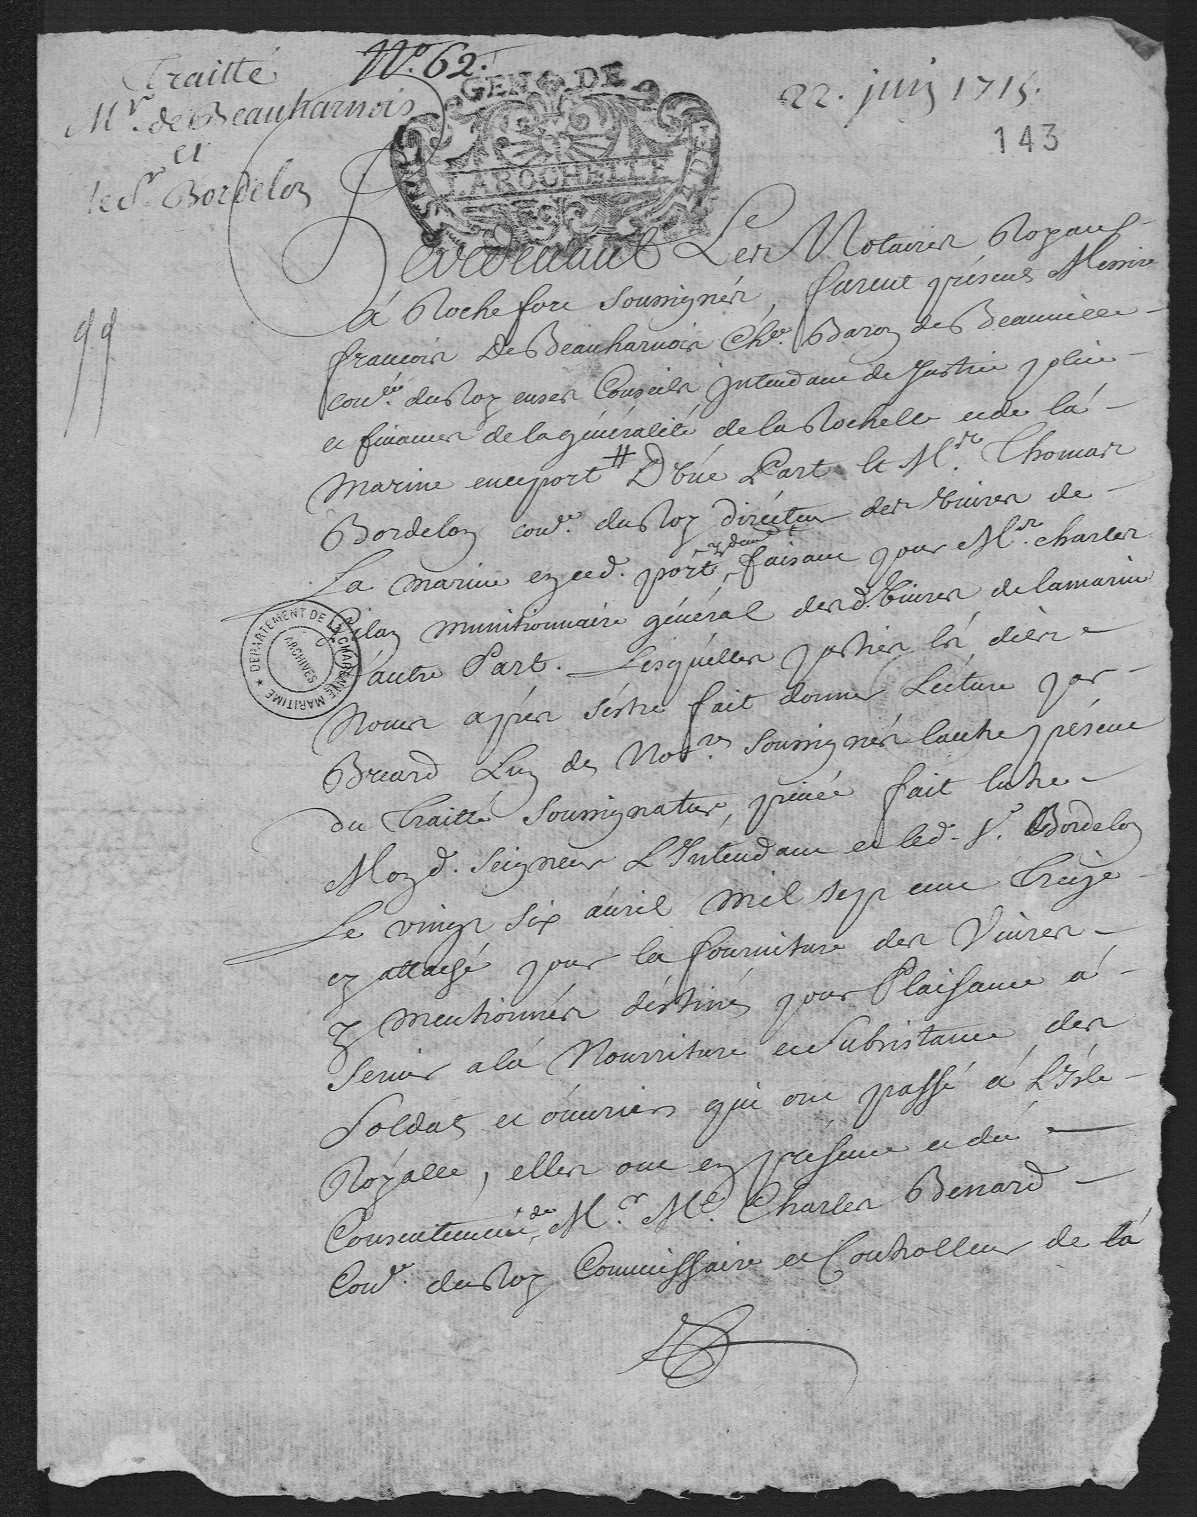 Traitté
Mr. de Beauharnois
et
le Sr. Bordelon
No. 62.
GEN DE
LAROCHELLE
22. juin 1715.
143
99
Pardevant Les Notaires Royaux
á Rochefort soussignés, furent présens Messire
françois De Beauharnois Cher. Baron de Beauville
coner. du Roy en ses Conseils Intendant de Justice police
et finances de la généralité de la Rochelle et de la
Marine en ce port # D'une Part et Mr. Thomas
Bordelon coner. du Roy directeur des vivres de
La marine en ced. port, faisant pour Mr. charles
Pilan munitionnaire général des d. vivres de la marine
d'autre Part. Lesquelles parties
Nous apres s'éstre fait donner Lécture par
Briard L'un des Nores. soussignés l'autre présent
du Traitté sous signature, privée fait entre
Mond. seigneur L'Intendant et led. Sr. Bordelon
Le vingt six avril mil sept cent treize
cy attaché pour la fourniture des Vivres
y mentionnés destinés pour Plaisance á
servir a la Nourriture et subsistance des
soldats et ouvriers qui ont passé á L'Isle
Royalle, elles ont en présence et du
Consentement de Mr. Me. Charles Benard
Coner. du Roy Commissaire et Controlleur de la
DEPARTEMENT DE LA CHARENTE MARITIME ★
ARCHIVES